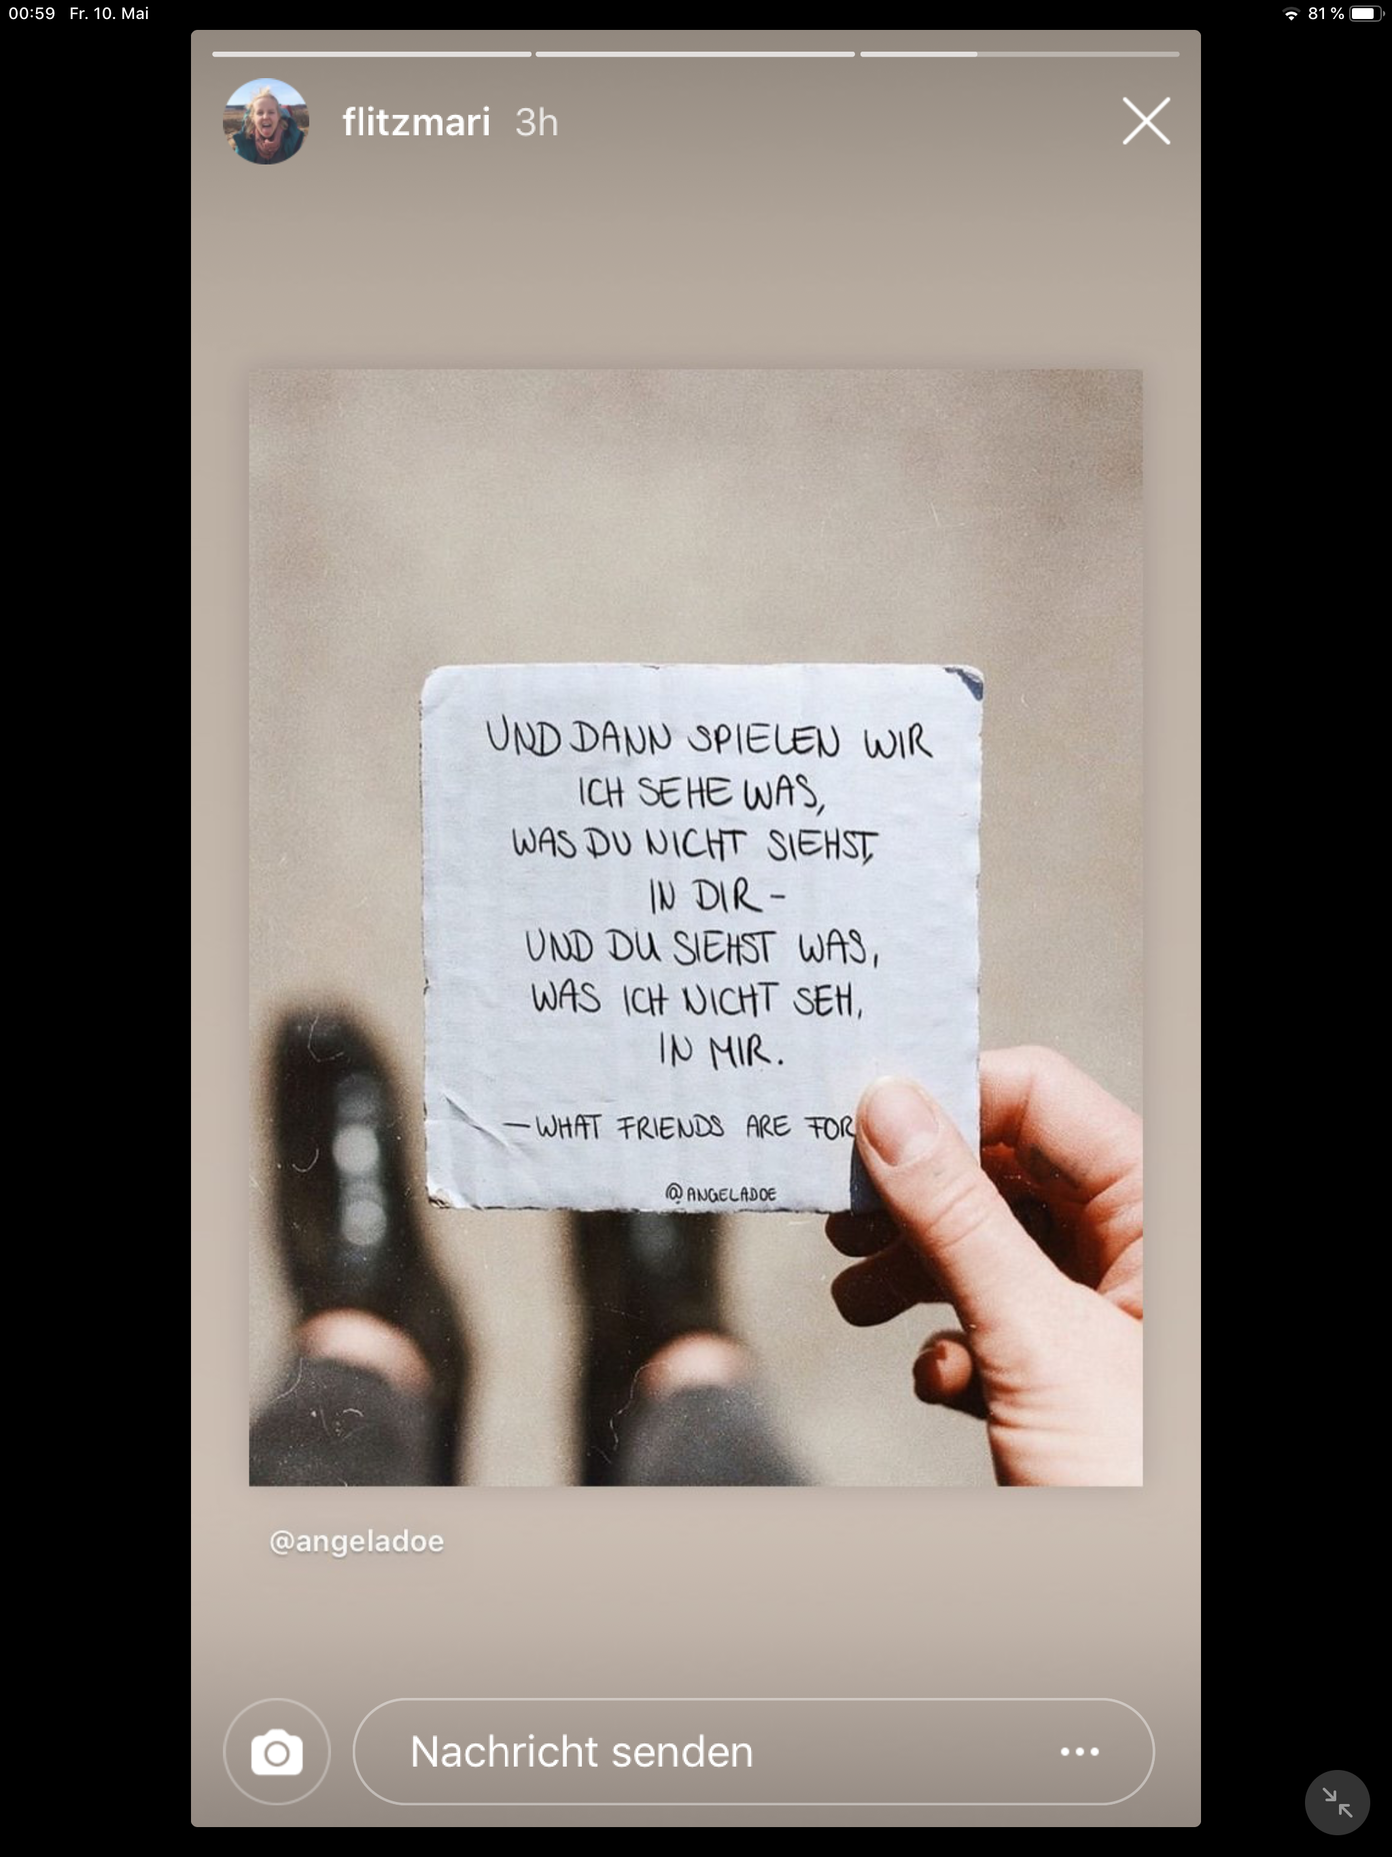 00:59 Fr. 10. Mai 81 %
flitzmari 3h
UND DANN SPIELEN WIR
ICH SEHE WAS,
WAS DU NICHT SIEHST,
IN DIR -
UND DU SIEHST WAS,
WAS ICH NICHT SEH,
IN MIR.
— WHAT FRIENDS ARE FOR
@ANGELADOE
@angeladoe
Nachricht senden